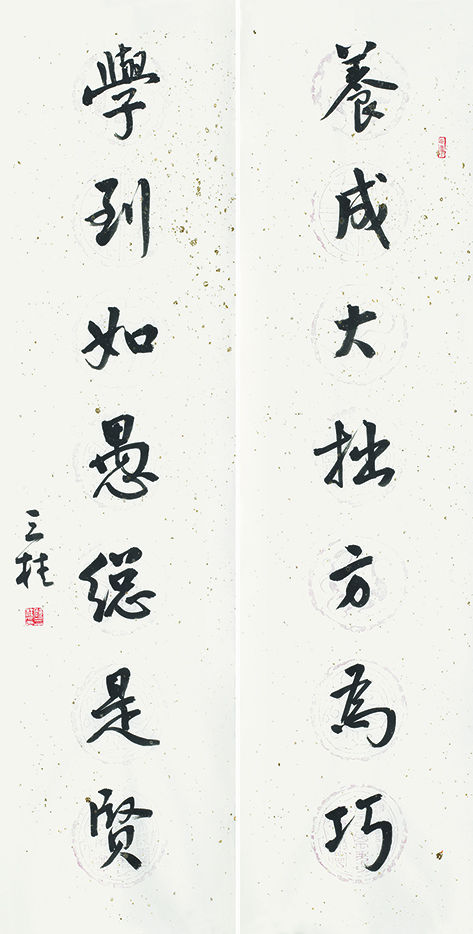 養成大拙方為巧
學到如愚總是賢
三桂